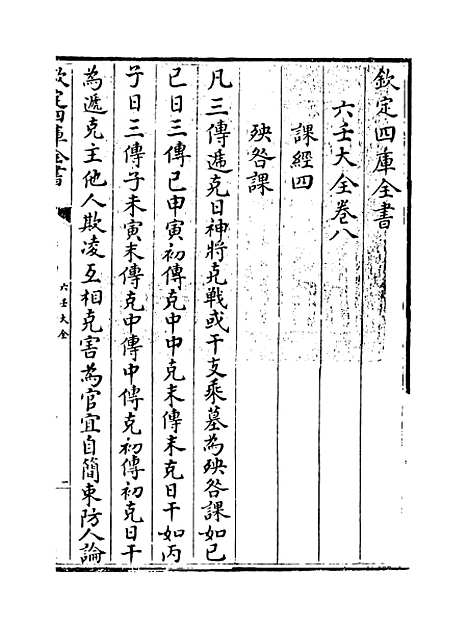 欽定四庫全書
六壬大全卷八
課經四
殃咎課
凡三傳遞克日神將克戰或干支乘墓為殃咎課如己
巳日三傳巳申寅初傳克中中克末傳末克日干如丙
子日三傳子未寅末傳克中傳中傳克初傳初克日干
為遞克主他人欺凌互相克害為官宜自簡束防人論
欽定四庫全書
六壬大全
一